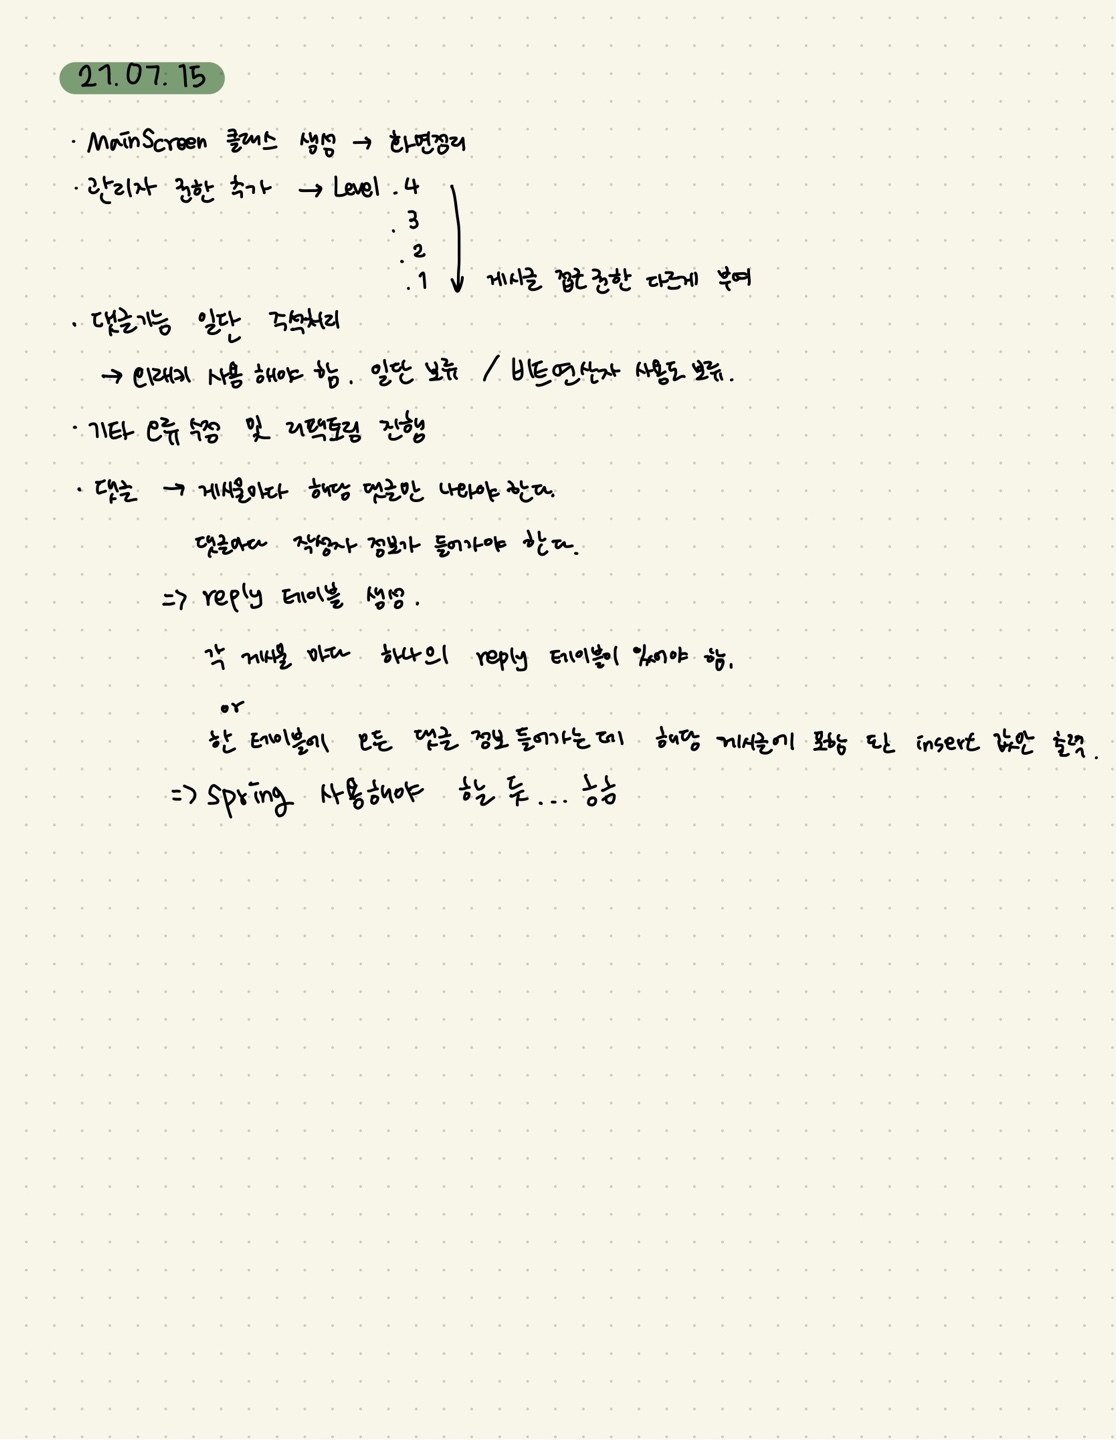 21.07.15
· MainScreen 클래스 생성 → 화면정리
· 관리자 권한 추가 → Level .4
.3
.2
.1 게시글 접근 권한 다르게 부여
· 댓글기능 일단 주석처리
→ 외래키 사용 해야 함. 일단 보류 / 비트연산자 사용도 보류.
· 기타 오류 수정 및 리팩토링 진행
· 댓글 → 게시물마다 해당 댓글만 나와야 한다.
댓글마다 작성자 정보가 들어가야 한다.
=> reply 테이블 생성.
각 게시물 마다 하나의 reply 테이블이 있어야 함.
or
한 테이블에 모든 댓글 정보 들어가는데 해당 게시글에 포함 된 insert 값만 출력.
=> spring 사용해야 할 듯... 흠흠